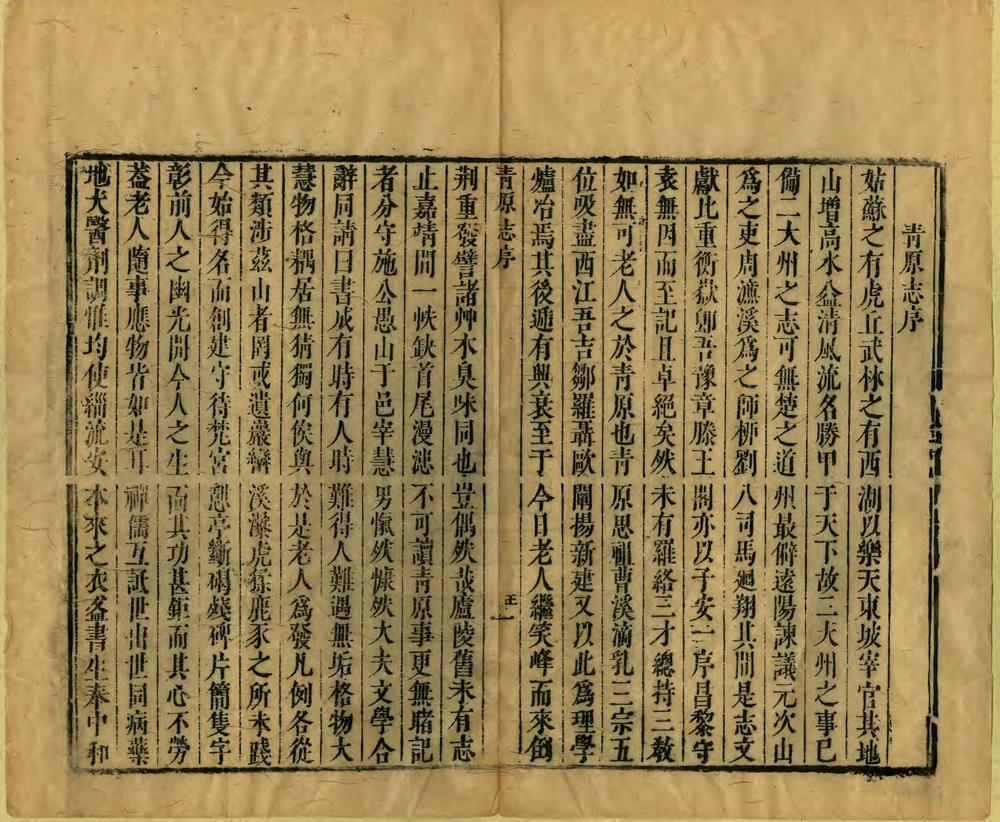 青原志序
姑蘇之有虎丘武林之有西湖以樂天東坡宰官其地
山增高水益清風流名勝甲于天下故二大州之事已
備二大州之志可無楚之道州最僻遠陽諫議元次山
為之吏周濂溪為之師柳劉八司馬廻翔其間是志文
獻比重衡嶽卽吾豫章滕王閣亦以子安一序昌黎守
袁無因而至記且卓絕矣然未有羅絡三才總持三教
如無可老人之於青原也青原思祖曹溪滴乳三宗五
位吸盡西江吾吉鄒羅聶歐闡揚新建又以此為理學
爐冶焉其後遞有興衰至于今日老人繼笑峰而來倒
青原志序
王一
荆重發譬諸艸木臭味同也豈偶然哉廬陵舊未有志
止嘉靖間一帙缺首尾漫漶不可讀青原事更無賭記
者分守施公愚山于邑宰慧男愾然慷然大夫文學合
辭同請曰書成有時有人時難得人難遇無垢格物大
慧物格耦居無猜獨何俟與於是老人為發凡例各從
其類涉茲山者罔或遺巖巒溪瀑虎猿鹿豕之所未踐
今始得名而創建守待梵宮憇亭斷碣殘碑片簡隻字
彰前人之幽光開今人之生面其功甚鉅而其心不勞
葢老人隨事應物皆如是耳禪儒互詆世出世同病藥
地大醫劑調惟均使緇流安本來之衣盋書生奉中和